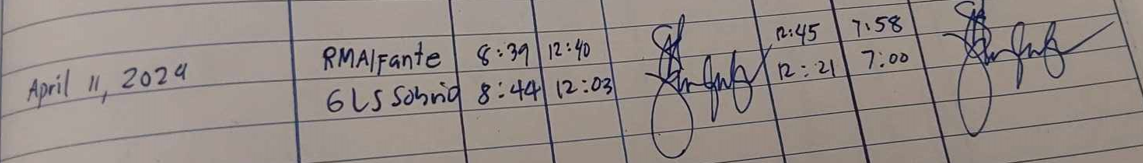 RMAlfante 8:39 12:40 12:45 7:58
April 11, 2024 GLS Sobrio 8:44 12:03 12:21 7:00